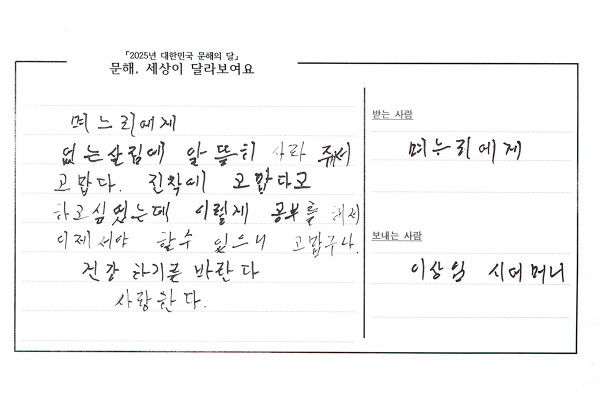 「2025년 대한민국 문해의 달」
문해, 세상이 달라보여요
며느리에게
없는살림에 알뜰히 사라 줘서
고맙다. 진작에 고맙다고
하고싶었는데 이렇게 공부를 해서
이제서야 할수 있으니 고맙구나.
건강 하기를 바란다
사랑한다.
받는 사람
며느리에게
보내는 사람
이상임 시어머니